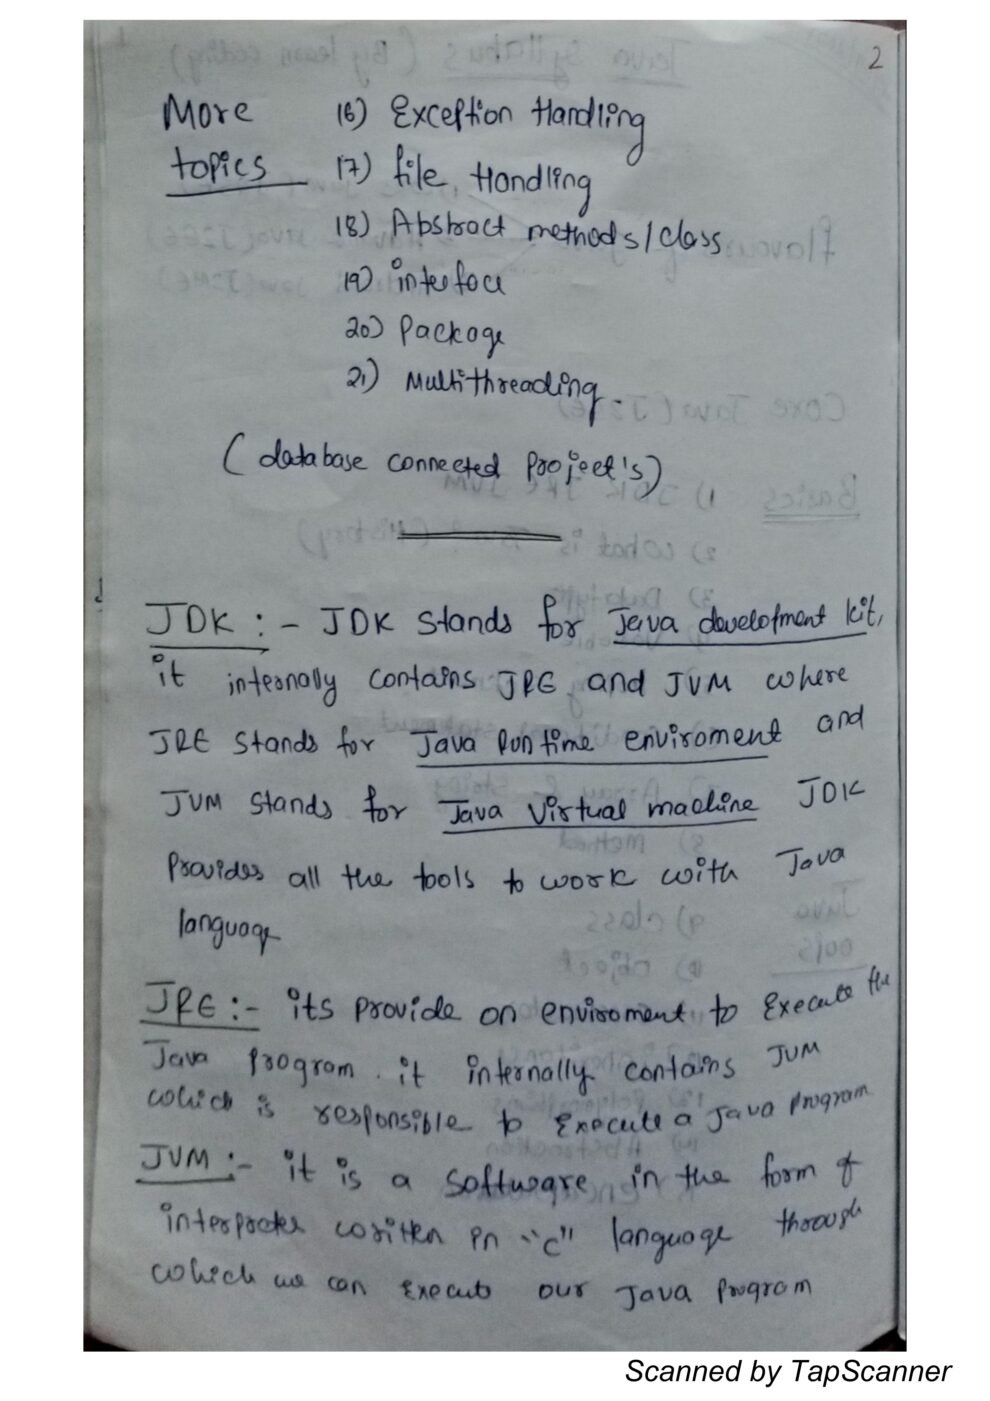 2
More 16) Exception Handling
topics 17) file Handling
18) Abstract methods/class
19) interface
20) Package
21) Multithreading.
(database connected project's)
JDK :- JDK stands for Java development kit,
it internally contains JRE and JVM where
JRE stands for Java Runtime enviroment and
JVM stands for Java Virtual machine JDK
Provides all the tools to work with Java
language
JRE :- its provide an enviroment to Execute the
Java Program. it internally contains JVM
which is responsible to Execute a Java program
JVM :- it is a software in the form of
interpreter written in "c" language through
which we can Execute our Java Program
Scanned by TapScanner